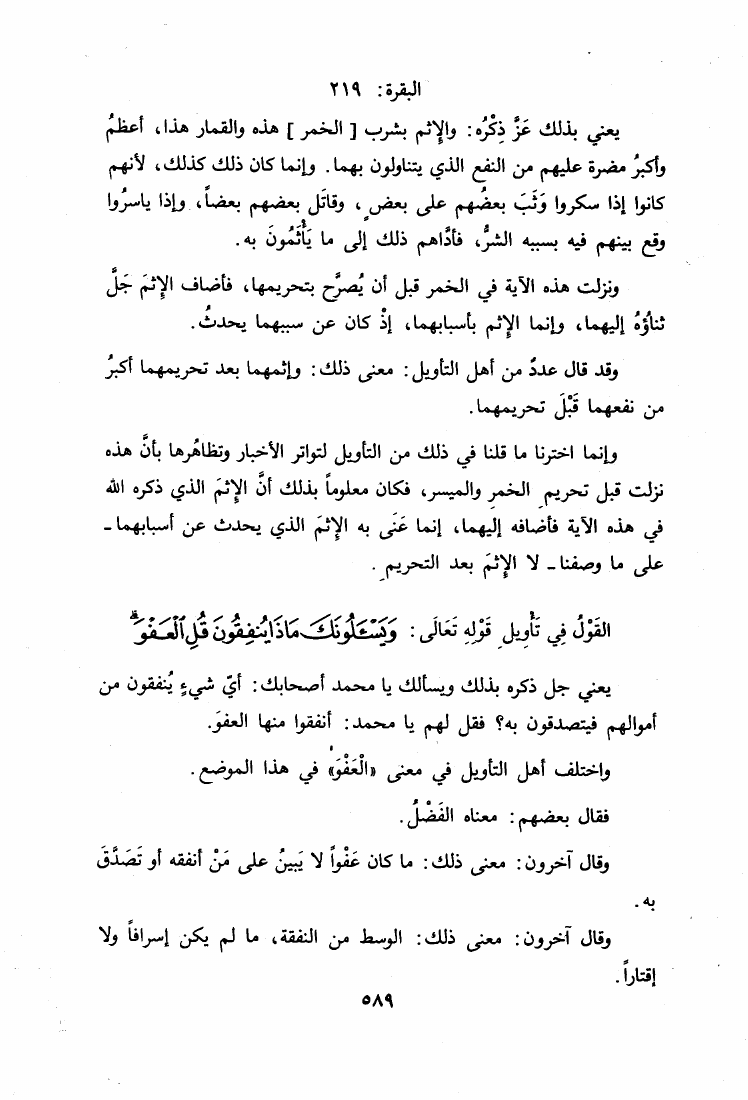 البقرة: ٢١٩
يعني بذلك عَزَّ ذِكْرُه: والإثم بشرب [ الخمر ] هذه والقمار هذا، أعظمُ
وأكبرُ مضرة عليهم من النفع الذي يتناولون بهما. وإنما كان ذلك كذلك، لأنهم
كانوا إذا سكروا وَثَبَ بعضُهم على بعضٍ، وقاتَل بعضهم بعضاً، وإذا ياسرُوا
وقع بينهم فيه بسببه الشرُّ، فأدَّاهم ذلك إلى ما يَأْثَمُونَ به.
ونزلت هذه الآية في الخمر قبل أن يُصرَّح بتحريمها، فأضاف الإثمَ جَلَّ
ثناؤهُ إليهما، وإنما الإثم بأسبابهما، إذْ كان عن سببهما يحدثُ.
وقد قال عددٌ من أهل التأويل: معنى ذلك: وإثمهما بعد تحريمهما أكبرُ
من نفعهما قَبْلَ تحريمهما.
وإنما اخترنا ما قلنا في ذلك من التأويل لتواتر الأخبار وتظاهُرها بأنَّ هذه
نزلت قبل تحريمِ الخمرِ والميسر، فكان معلوماً بذلك أنَّ الإثمَ الذي ذكره الله
في هذه الآية فأضافه إليهما، إنما عَنَى به الإثمَ الذي يحدث عن أسبابهما ـ
على ما وصفنا ـ لا الإثمَ بعد التحريمِ.
القَوْلُ فِي تَأْوِيلِ قَوْلِهِ تَعَالَى: وَيَسْـَٔلُونَكَ مَاذَا يُنفِقُونَ قُلِ ٱلْعَفْوَ ۗ
يعني جل ذكره بذلك ويسألك يا محمد أصحابك: أيّ شيءٍ يُنفقون من
أموالهم فيتصدقون به؟ فقل لهم يا محمد: أنفقوا منها العفوَ.
واختلف أهل التأويل في معنى «الْعَفْوَ» في هذا الموضع.
فقال بعضهم: معناه الفَضْلُ.
وقال آخرون: معنى ذلك: ما كان عَفْواً لا يَبينُ على مَنْ أنفقه أو تَصَدَّقَ
به.
وقال آخرون: معنى ذلك: الوسط من النفقة، ما لم يكن إسرافاً ولا
إقتاراً.
٥٨٩